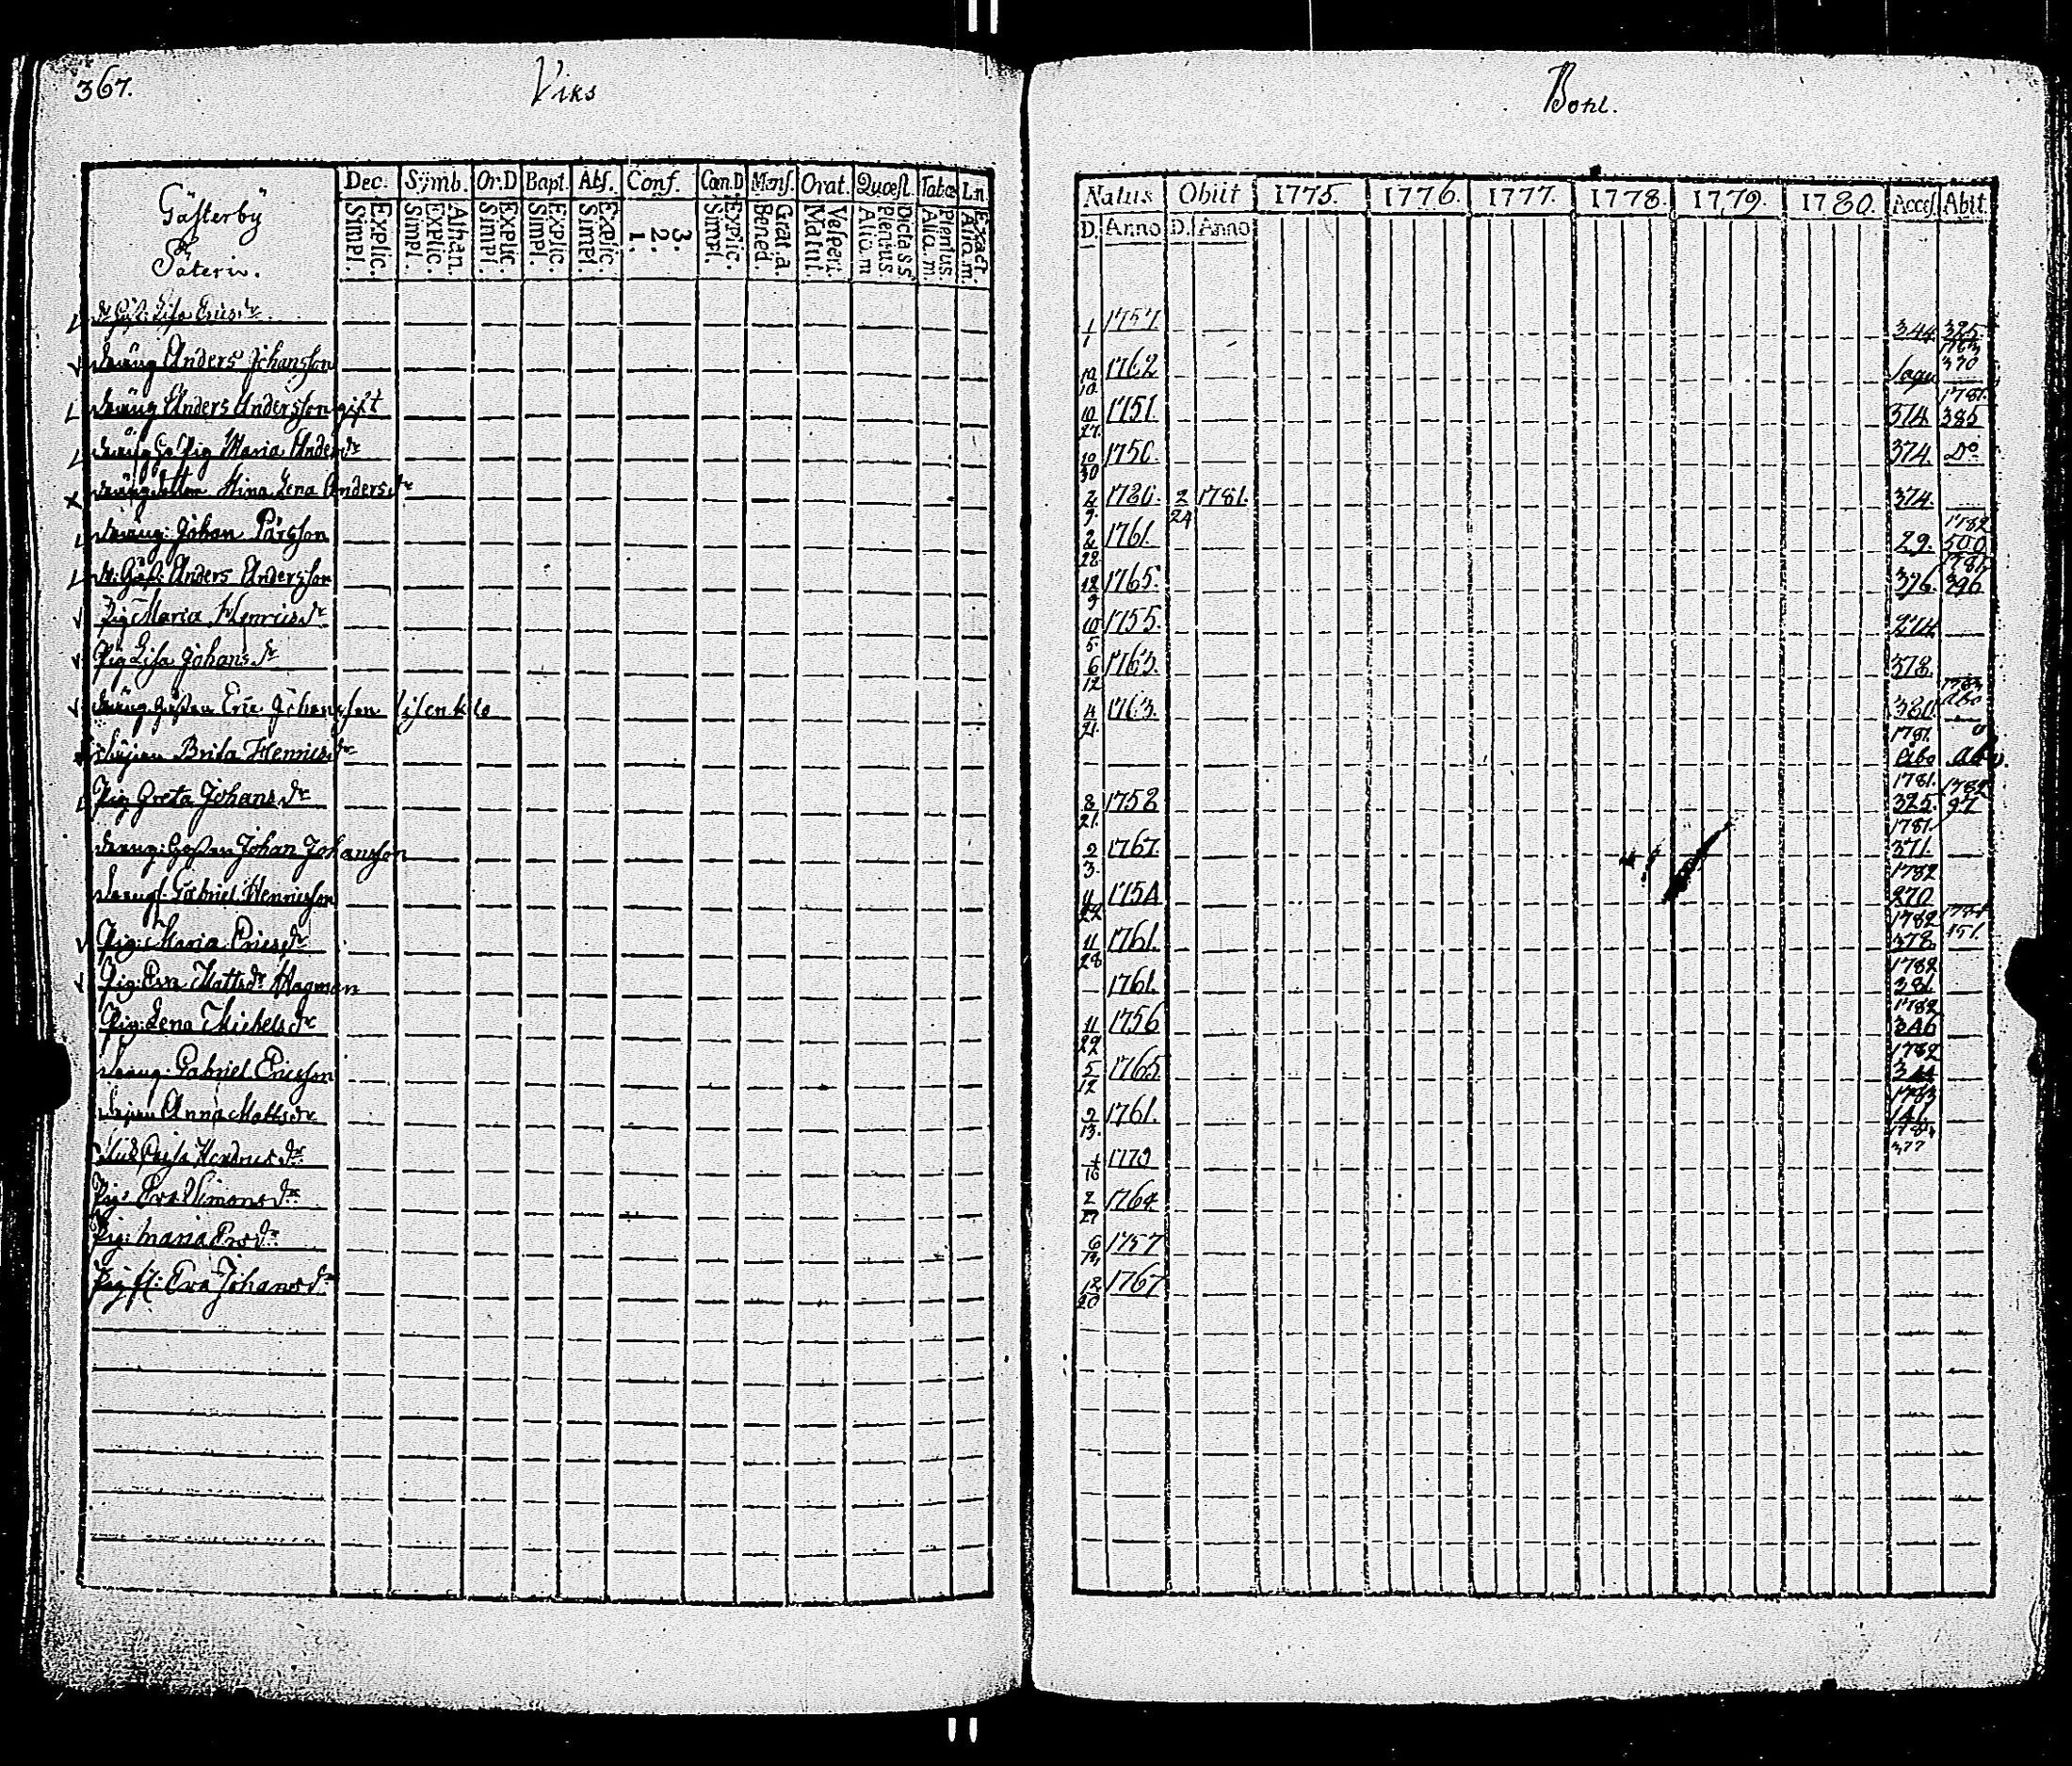 367. Viks Bohl.
Gästerby
Säteri.
Dec. Symb. Or.D Bapt. Abs. Conf. Can.D Mens. Orat. Quæst. Tabæ Ln.
Simpl. Explic. Simpl. Explic. Athan. Simpl. Explic. Simpl. Explic. Simpl. Explic. 1. 2. 3. Simpl. Explic. Bened. Grat. a. Matut. Vesperi. Aliq. m. Plenius. Dicta s s Aliq. m. Plenius. Aliq. m. Exact.
Natus Obiit 1775. 1776. 1777. 1778. 1779. 1780. Access. Abit.
D. Anno D. Anno
Lisa Erics dr 1/1 1757 344 325
Dräng Anders Johansson 10/10 1762 1783 370
Dräng Anders Andersson gift 10/27. 1751. 374 1781. 385
Pig Maria Anders dr 10/30 1750. 374. Do
Stina Lena Anders dr 2/9 1780. 2/24 1781. 374.
Dräng: Johan Pärsson 2/28 1761. 29. 1782 500
Anders Andersson 12/9 1765. 376. 1781 396
Pig Maria Henrics dr 10/5 1755. 274
Pig Lisa Johans dr 6/12 1763. 378.
Dräng Gossen Eric Johansson 4/21. 1763. 380. 1783 Abo
Brita Henrics dr 1781. Abo Abo.
Pig Greta Johans dr 8/21. 1752 1781. 325. 1782 97
Dräng: Gossen Johan Johansson 2/3. 1767. 1781. 371.
Dräng: Gabriel Henricsson 11/22 1754 1782 270
Pig: Maria Erics dr 11/28 1761. 1782 378 151.
Pig: Eva Matts dr Hagman 1761. 1782 381.
Pig: Lena Michels dr 11/29 1756 1782 346
Dräng: Gabriel Ericsson 5/12 1765 1782 344
Anna Matts dr 2/13. 1761. 1783 141
Caisa Hendrics dr 1/10 1779 377
Pig: Eva Simons dr 2/27 1764.
Pig: Maria Ers dr 6/13 1757
Pig fl: Eva Johans dr 12/20 1767